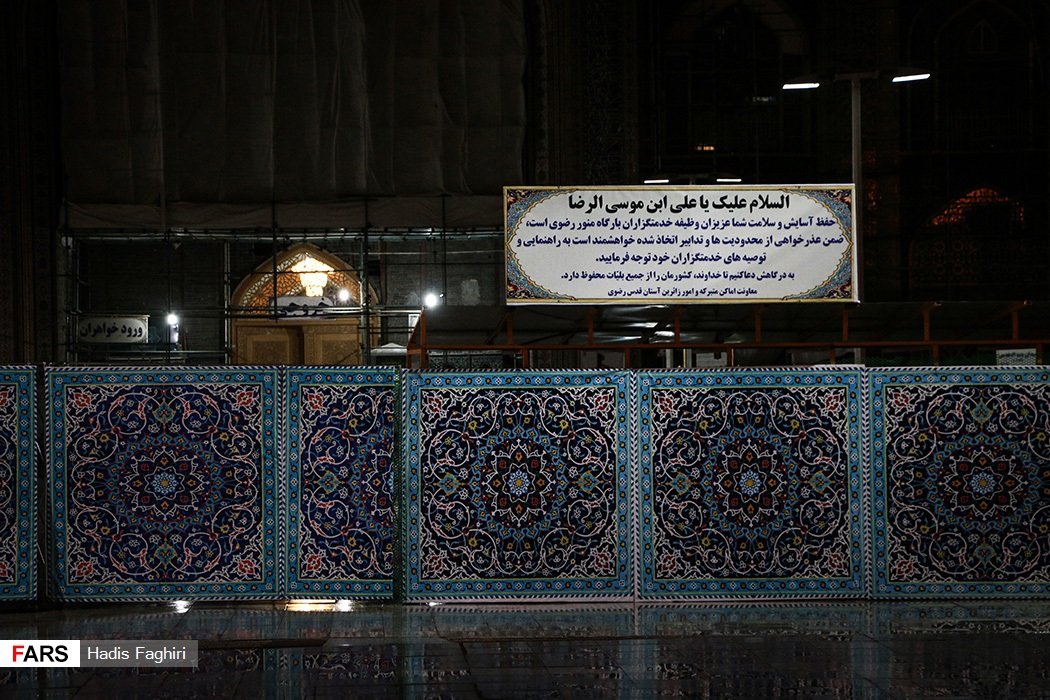 السلام علیک یا علی ابن موسی الرضا
حفظ آسایش و سلامت شما عزیزان وظیفه خدمتگزاران بارگاه منور رضوی است،
ضمن عذرخواهی از محدودیت ها و تدابیر اتخاذ شده خواهشمند است به راهنمایی و
توصیه های خدمتگزاران خود توجه فرمایید.
به درگاهش دعا کنیم تا خداوند، کشورمان را از جمیع بلیّات محفوظ دارد.
معاونت اماکن متبرکه و امور زائرین آستان قدس رضوی
ورود خواهران
FARS Hadis Faghiri